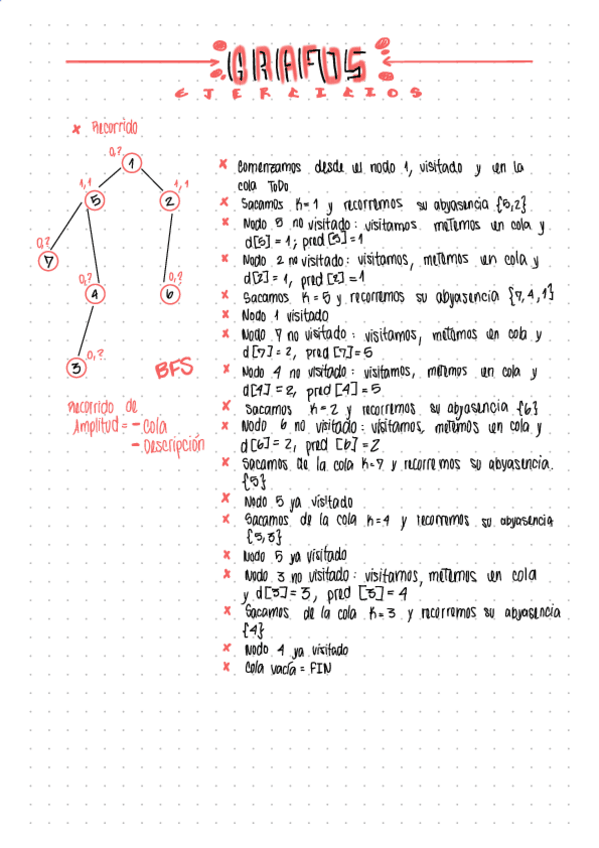 GRAFOS
EJERCICIOS
x Recorrido
0,?
1
1,1
5
1,1
2
0,?
7
0,?
4
0,?
6
0,?
3
BFS
Recorrido de
Amplitud = - Cola
- Descripción
x Comenzamos desde el nodo 1, visitado y en la
cola ToDo
x Sacamos K=1 y recorremos su abyasencia {5,2}
x Nodo 5 no visitado: visitamos metemos en cola y
d[5] = 1; pred [5] = 1
x Nodo 2 no visitado: visitamos, metemos en cola y
d[2] = 1, pred [2] = 1
x Sacamos K = 5 y recorremos su abyasencia {7,4,1}
x Nodo 1 visitado
x Nodo 7 no visitado: visitamos, metemos en cola y
d[7] = 2, pred [7] = 5
x Nodo 4 no visitado: visitamos, metemos en cola y
d[4] = 2, pred [4] = 5
x Sacamos K = 2 y recorremos su abyasencia {6}
x Nodo 6 no visitado: visitamos, metemos en cola y
d[6] = 2, pred [6] = 2
x Sacamos de la cola K=7 y recorremos su abyasencia
{5}
x Nodo 5 ya visitado
x Sacamos de la cola K=4 y recorremos su abyasencia
{5,3}
x Nodo 5 ya visitado
x Nodo 3 no visitado: visitamos, metemos en cola
y d[3] = 3, pred [3] = 4
x Sacamos de la cola K=3 y recorremos su abyasencia
{4}
x Nodo 4 ya visitado
x Cola vacía = FIN